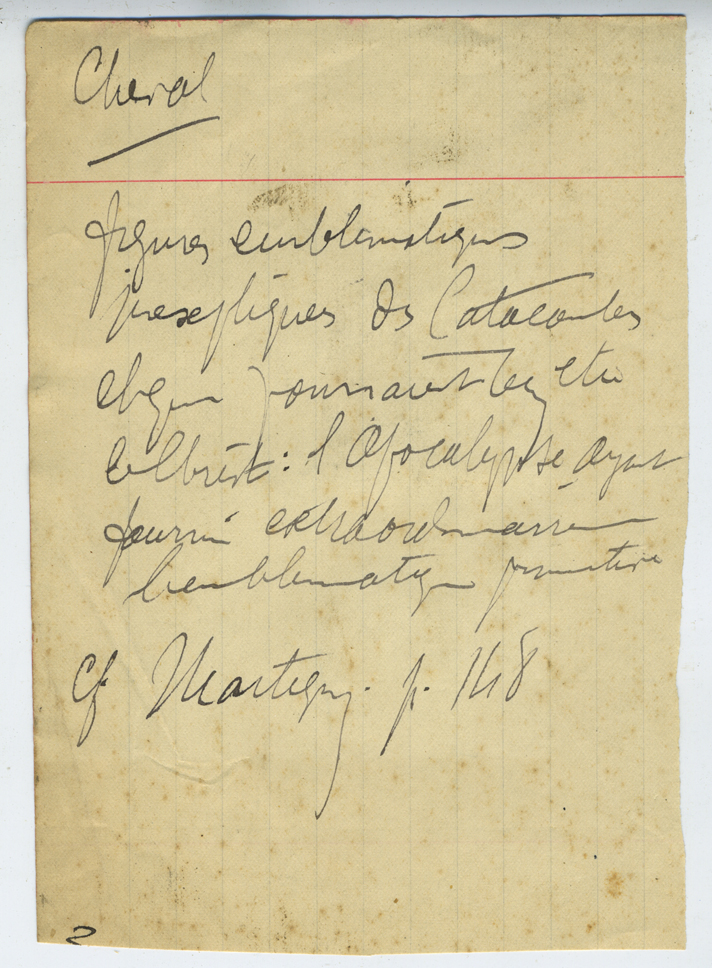 Cheval
figures emblématiques
inexpliquées des Catacombes
et qui pourraient être
: l'Apocalypse ayant
fourni extraordinairement
l'emblématique primitive
cf Martigny. p. 148
2